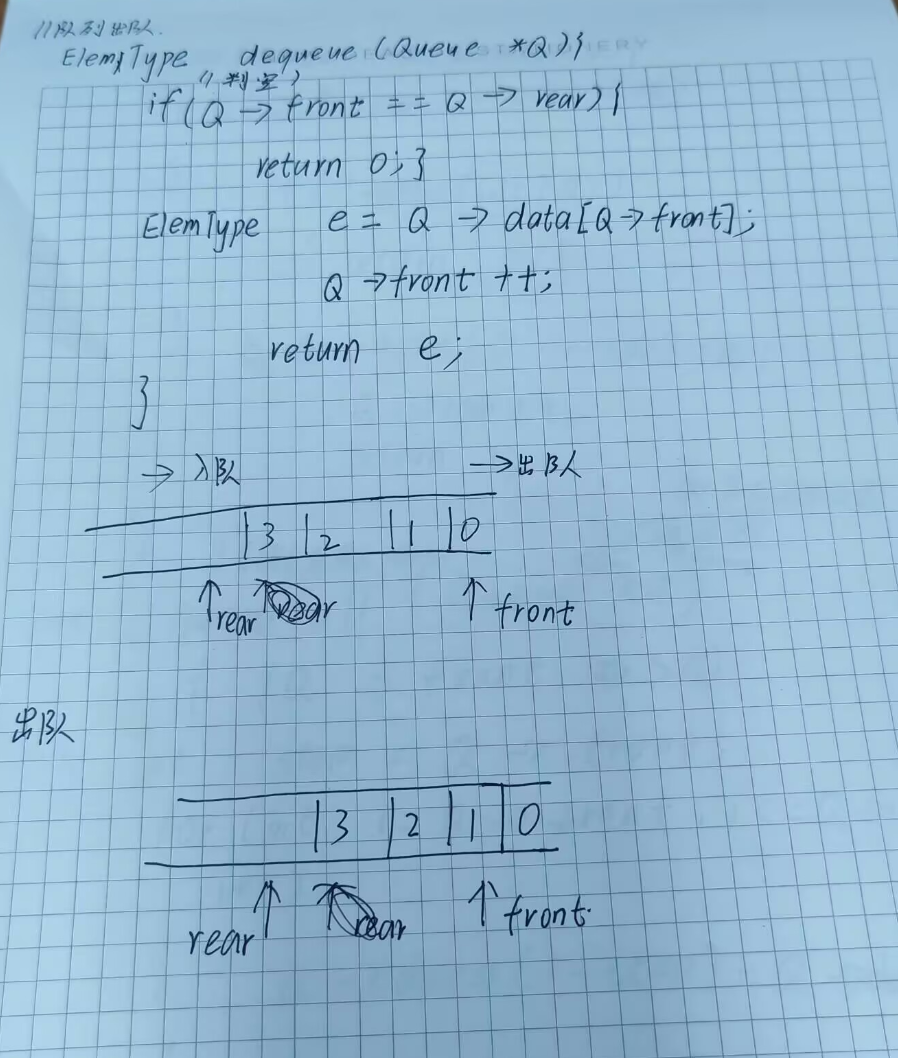 //队列出队.
ElemType dequeue (Queue *Q){
//判空
if(Q → front == Q → rear){
return 0;}
ElemType e = Q → data[Q→front];
Q →front ++;
return e;
}
→ 入队 →出队
3 2 1 0
rear front
出队
3 2 1 0
rear front